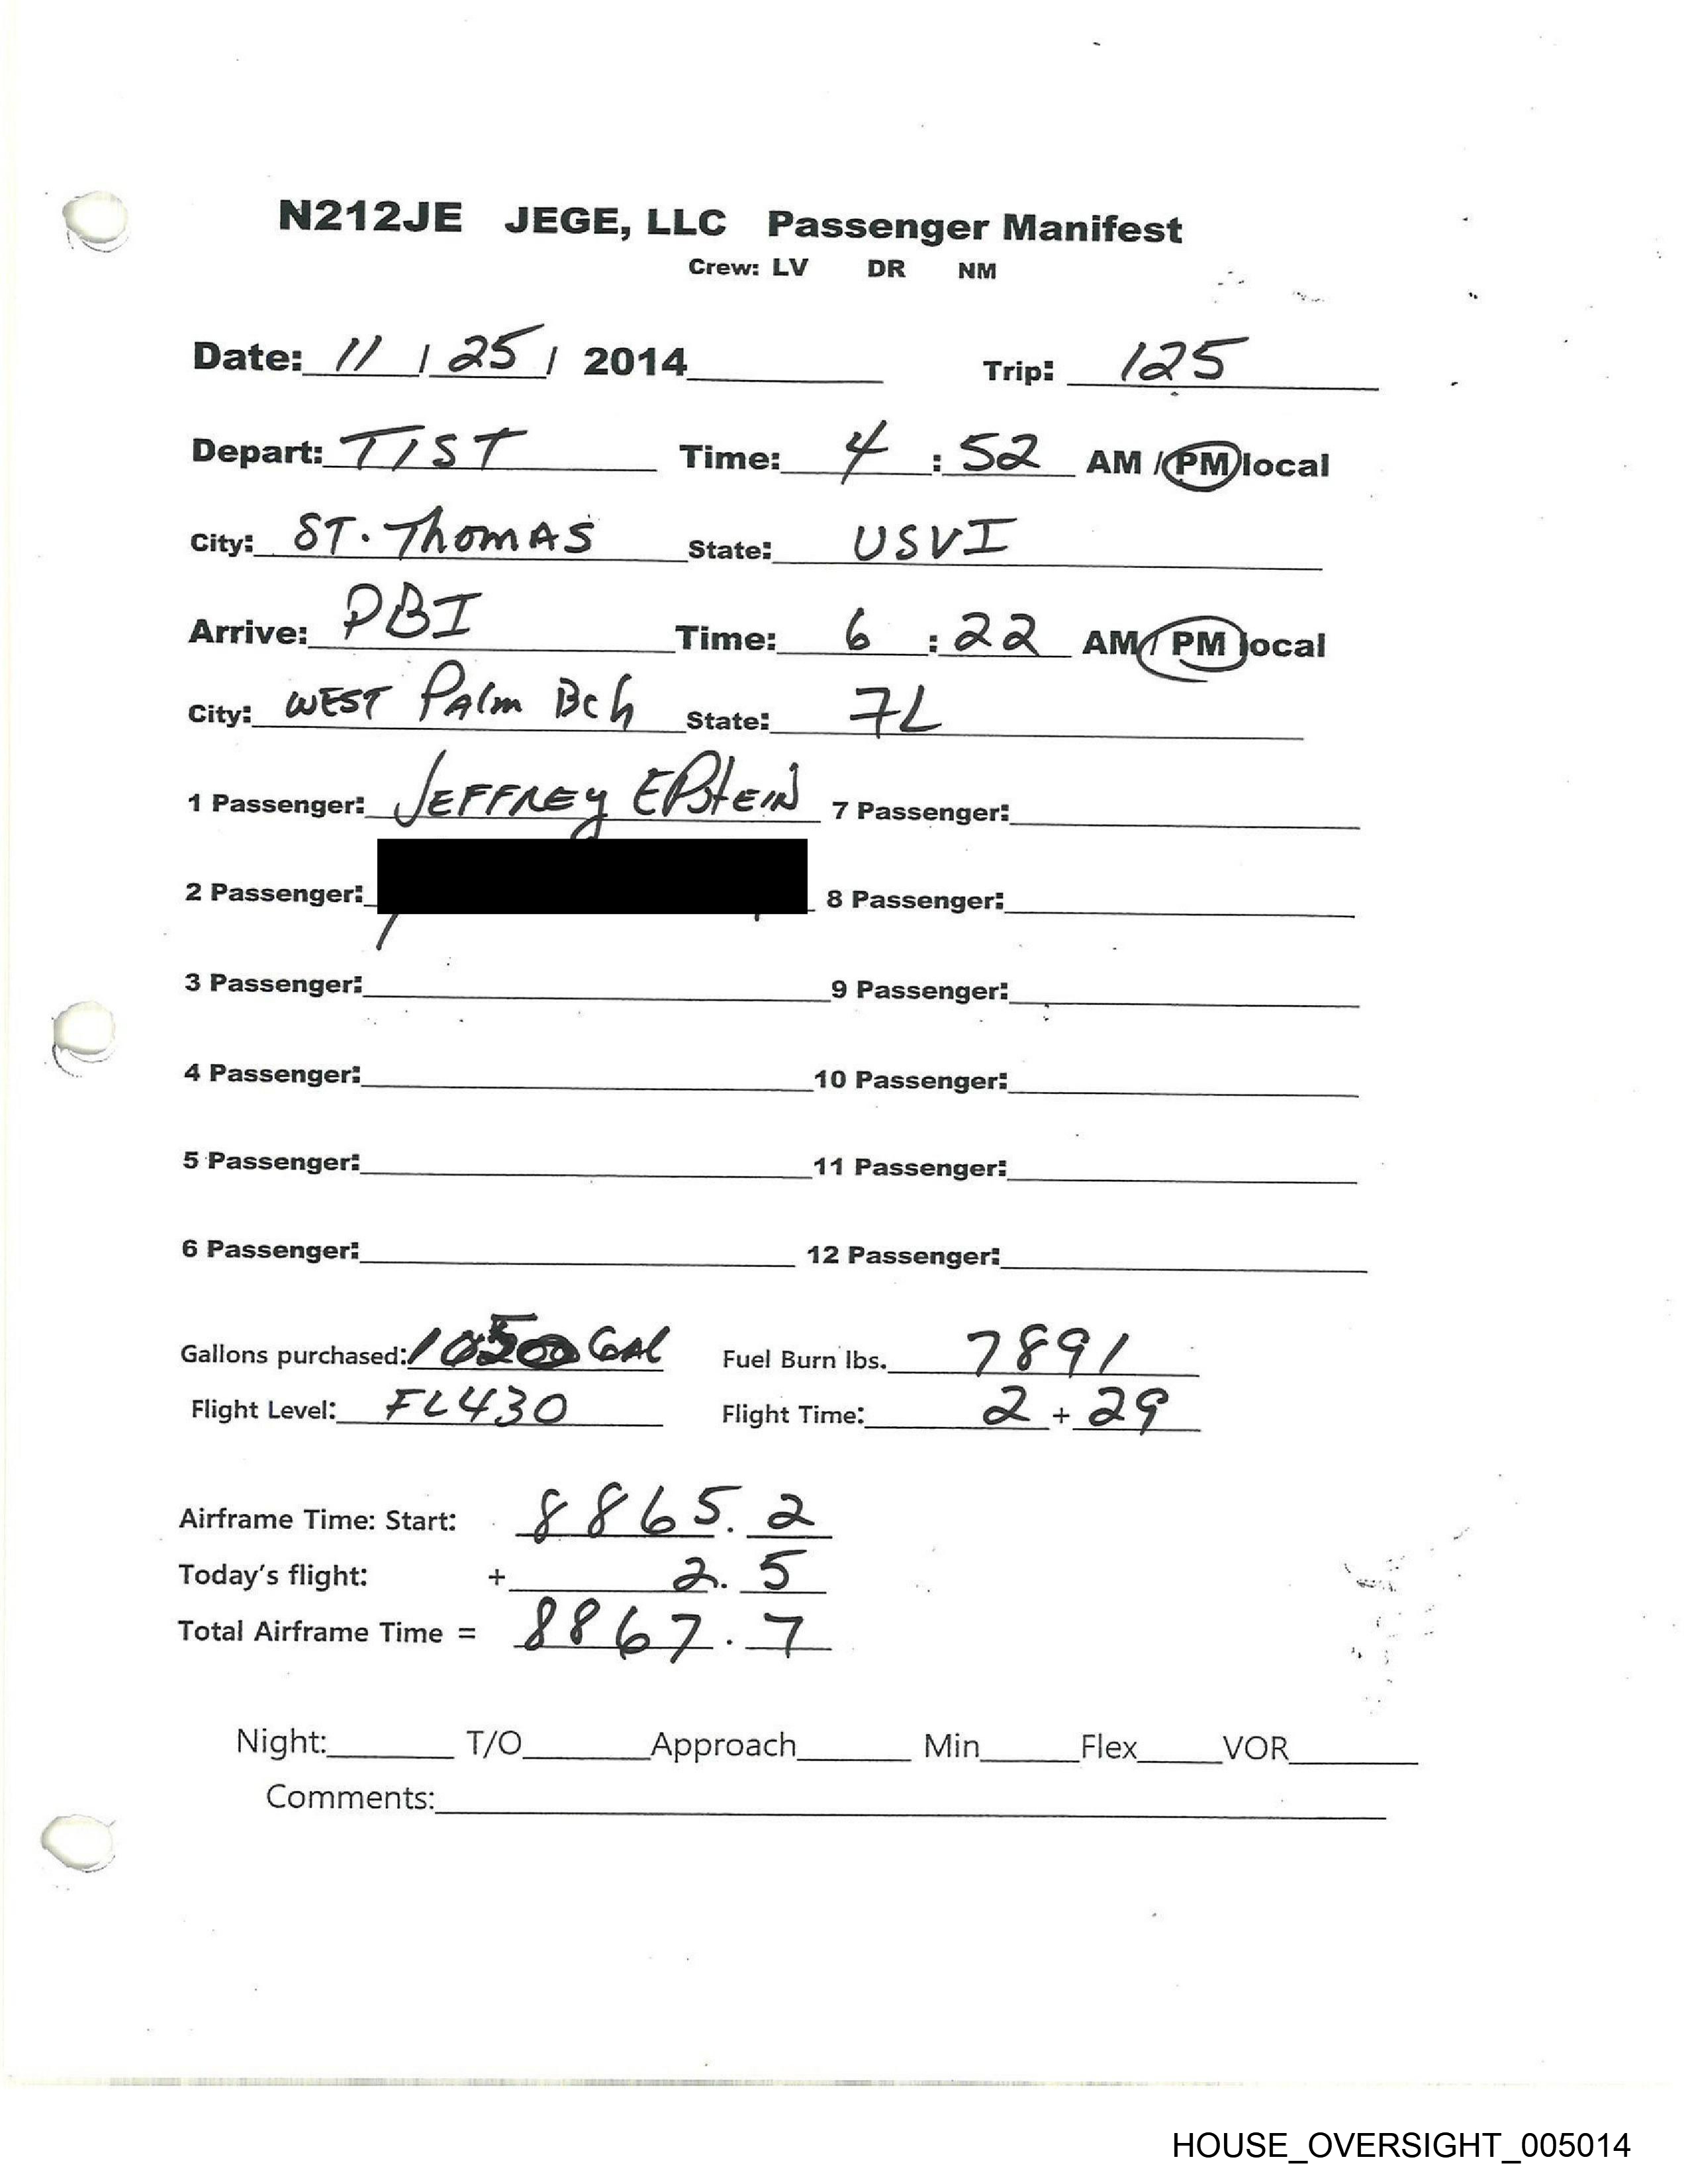 N212JE JEGE, LLC Passenger Manifest
Crew: LV DR NM
Date: 11 / 25 / 2014 Trip: 125
Depart: TIST Time: 4 : 52 AM / PM local
City: ST. Thomas State: USVI
Arrive: PBI Time: 6 : 22 AM / PM local
City: WEST Palm Bch State: FL
1 Passenger: JEFFREY EPStEIN 7 Passenger:
2 Passenger: 8 Passenger:
3 Passenger: 9 Passenger:
4 Passenger: 10 Passenger:
5 Passenger: 11 Passenger:
6 Passenger: 12 Passenger:
Gallons purchased: GAL Fuel Burn lbs. 7891
Flight Level: FL430 Flight Time: 2 + 29
Airframe Time: Start: 8865.2
Today's flight: + 2.5
Total Airframe Time = 8867.7
Night: T/O Approach Min Flex VOR
Comments:
HOUSE_OVERSIGHT_005014